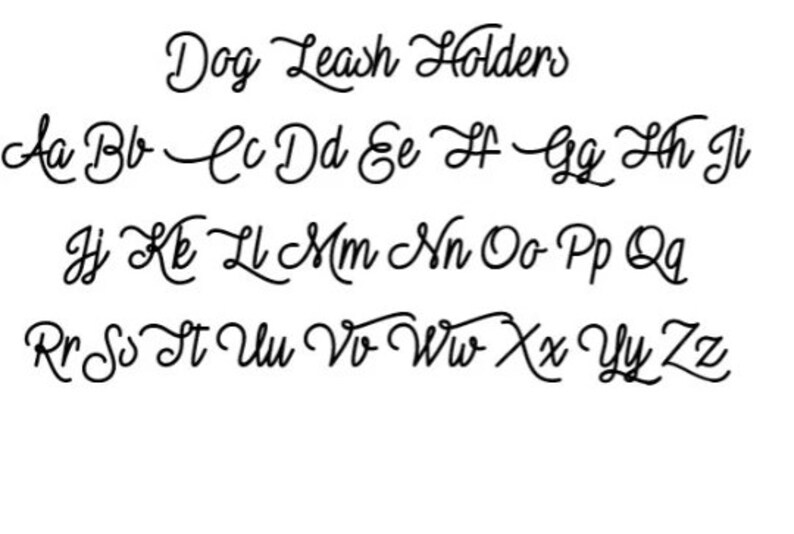 Dog Leash Holders
Aa Bb Cc Dd Ee Ff Gg Hh Ii
Jj Kk Ll Mm Nn Oo Pp Qq
Rr Ss Tt Uu Vv Ww Xx Yy Zz